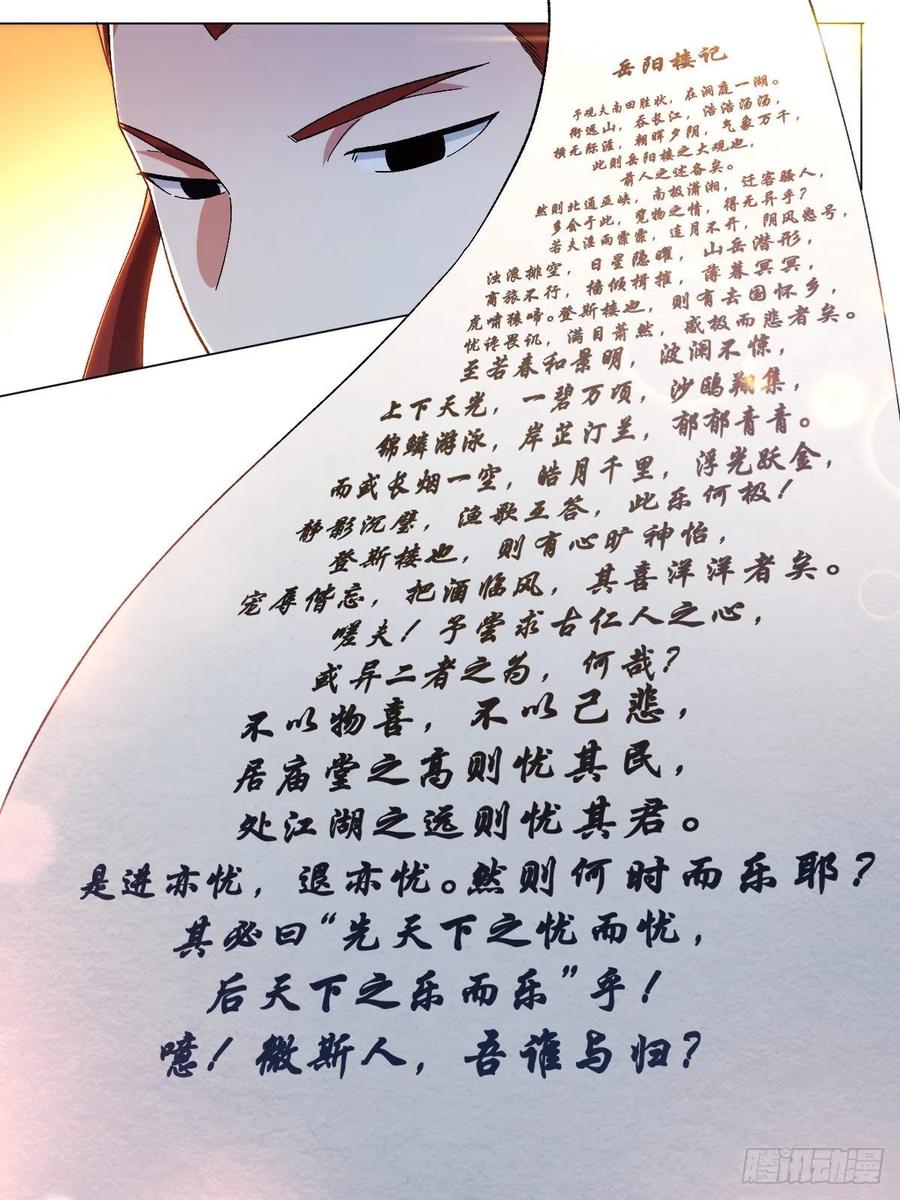 岳阳楼记
予观夫南田胜状，在洞庭一湖。
衔远山，吞长江，浩浩汤汤，
横无际涯，朝晖夕阴，气象万千，
此则岳阳楼之大观也，
前人之述备矣。
然则北通巫峡，南极潇湘，迁客骚人，
多会于此，览物之情，得无异乎？
若夫淫雨霏霏，连月不开，阴风怒号，
浊浪排空，日星隐曜，山岳潜形，
商旅不行，樯倾楫摧，薄暮冥冥，
虎啸猿啼。登斯楼也，则有去国怀乡，
忧谗畏讥，满目萧然，感极而悲者矣。
至若春和景明，波澜不惊，
上下天光，一碧万顷，沙鸥翔集，
锦鳞游泳，岸芷汀兰，郁郁青青。
而或长烟一空，皓月千里，浮光跃金，
静影沉璧，渔歌互答，此乐何极！
登斯楼也，则有心旷神怡，
宠辱偕忘，把酒临风，其喜洋洋者矣。
嗟夫！予尝求古仁人之心，
或异二者之为，何哉？
不以物喜，不以己悲，
居庙堂之高则忧其民，
处江湖之远则忧其君。
是进亦忧，退亦忧。然则何时而乐耶？
其必曰“先天下之忧而忧，
后天下之乐而乐”乎！
噫！微斯人，吾谁与归？
腾讯动漫